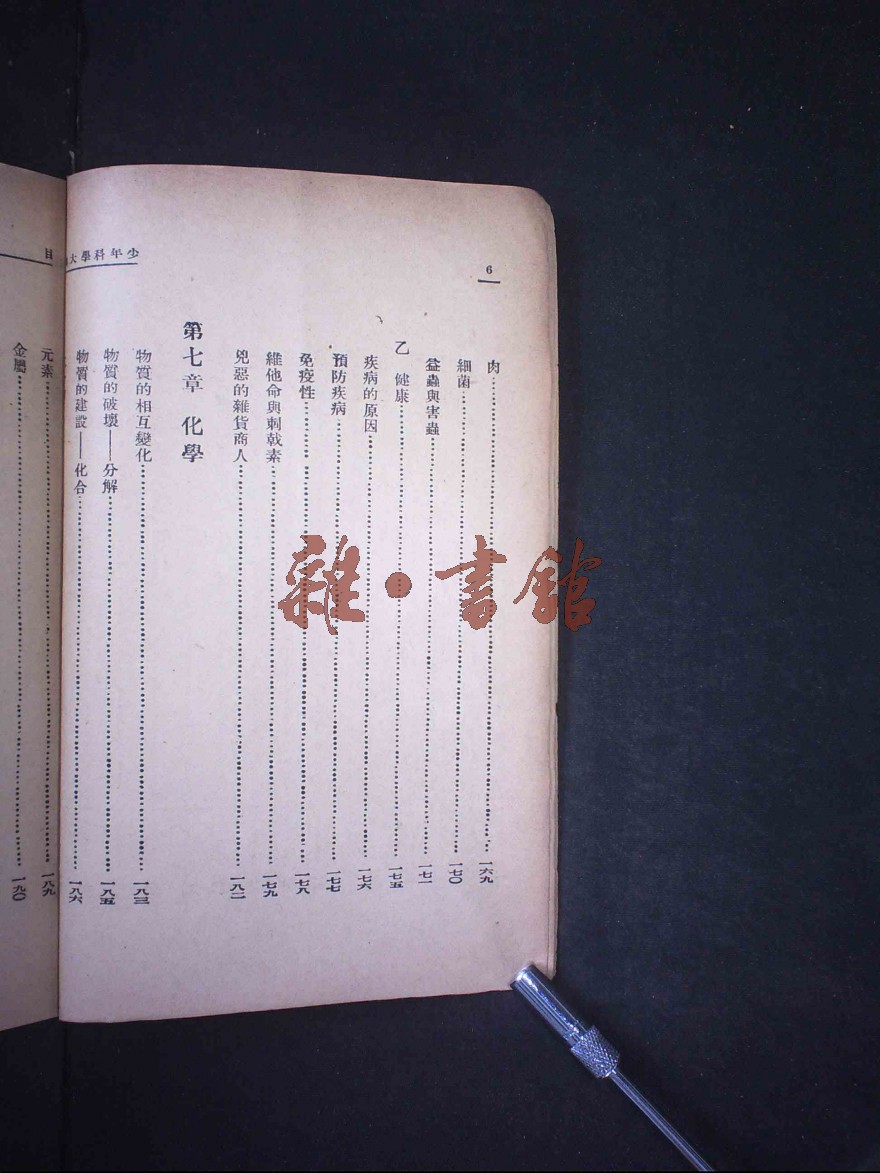 少年科學大
6
肉 一六九
細菌 一七〇
益蟲與害蟲 一七一
乙 健康 一七五
疾病的原因 一七六
預防疾病 一七七
免疫性 一七八
維他命與刺戟素 一七九
兇惡的雜貨商人 一八二
第七章 化學
物質的相互變化 一八三
物質的破壞——分解 一八五
物質的建設——化合 一八六
目
元素 一八九
金屬 一九〇
雜·書館